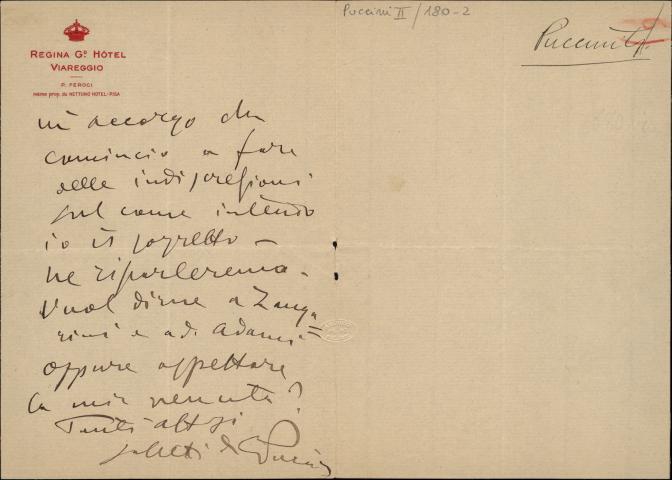 Puccini II / 180-2
Puccini
REGINA Gᴰ HÔTEL
VIAREGGIO
P. FEROCI
même prop. du NETTUNO HOTEL-PISA
m'accorgo che
comincio a fare
delle indiscrezioni
sul come intendo
io il soggetto —
ne riparleremo -
Vuol dirne a Zanga
rini e ad Adami
oppure aspettare
la mia venuta?
Tanti
saluti di Puccini